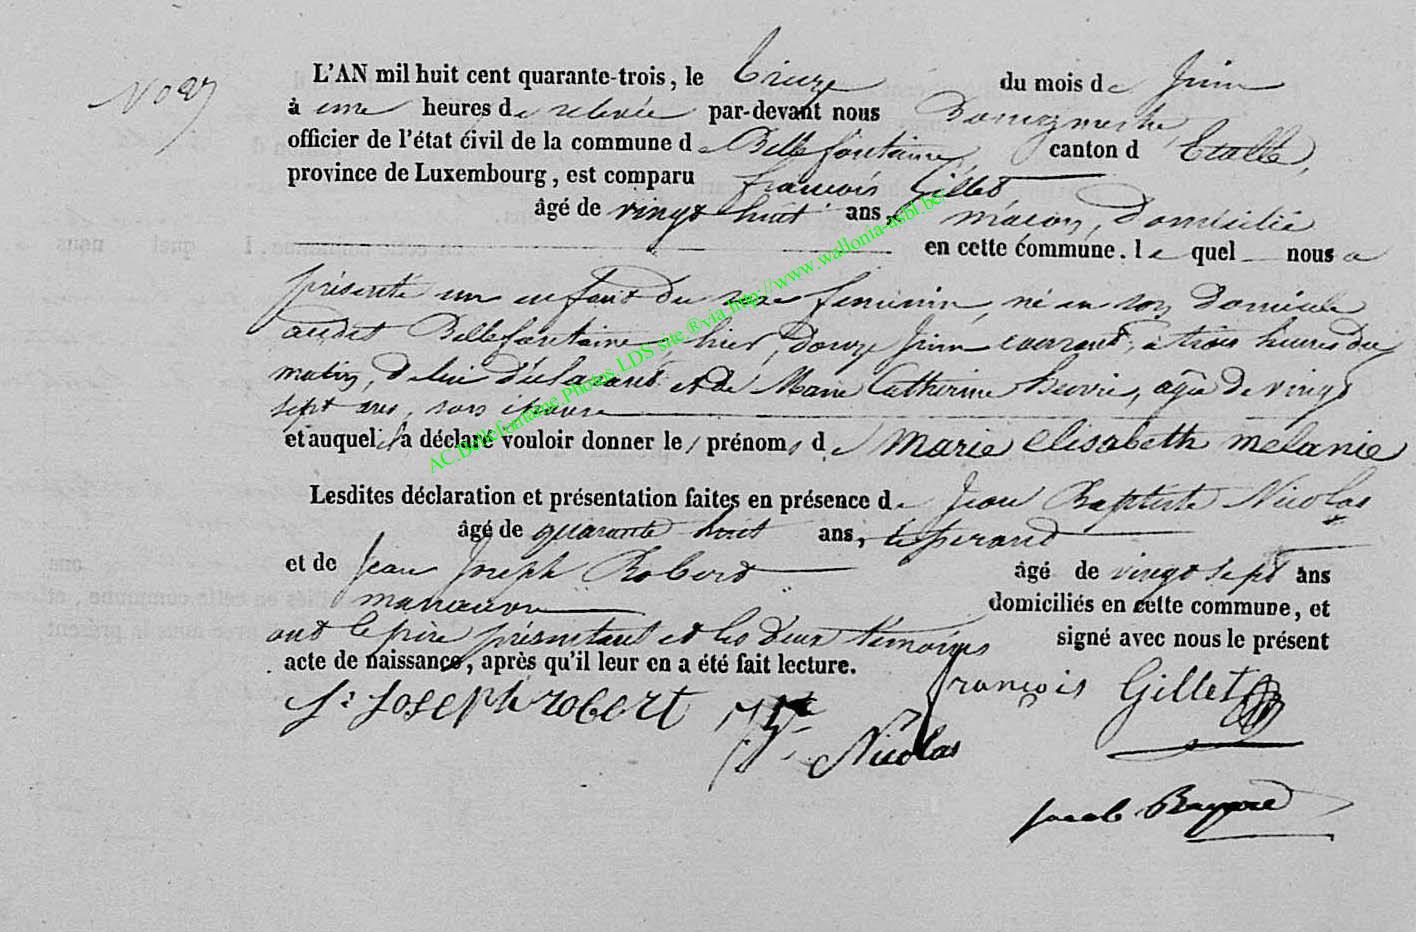 No 27
L'AN mil huit cent quarante-trois, le treize du mois de Juin
à une heures de relevée par-devant nous Bourgmestre
officier de l'état civil de la commune de Bellefontaine, canton d Etalle,
province de Luxembourg, est comparu françois Gillet
âgé de vingt huit ans, maçon, domicilié
en cette commune. le quel nous a
présenté un enfant du sexe feminin, né en son domicile
audit Bellefontaine, hier, douze Juin courant, à trois heures du
matin, de lui déclarant et de Marie Catherine, agée de vingt
sept ans, son épouse
et auquel il a déclaré vouloir donner les prénoms de Marie elisabeth melanie
Lesdites déclaration et présentation faites en présence de Jean Baptiste Nicolas
âgé de quarante huit ans,
et de Jean Joseph Robert âgé de vingt sept ans
manœuvre domiciliés en cette commune, et
ont le père présentant et les deux témoins signé avec nous le présent
acte de naissance, après qu'il leur en a été fait lecture.
J: Joseph robert
françois Gillet
Nicolas
Jacob
AC.Bellefontaine.Photos LDS site ®via http://www.wallonia-asbl.be/